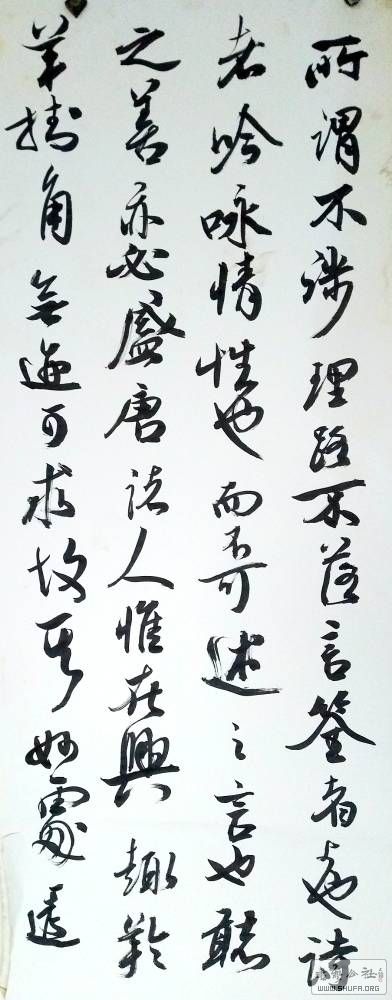 所謂不涉理路不落言筌者上也詩
者吟咏情性也而不可述之言也聽
之善亦必盛唐諸人惟在興趣羚
羊掛角無迹可求故其妙處透
公社
WWW.SHUFA.ORG